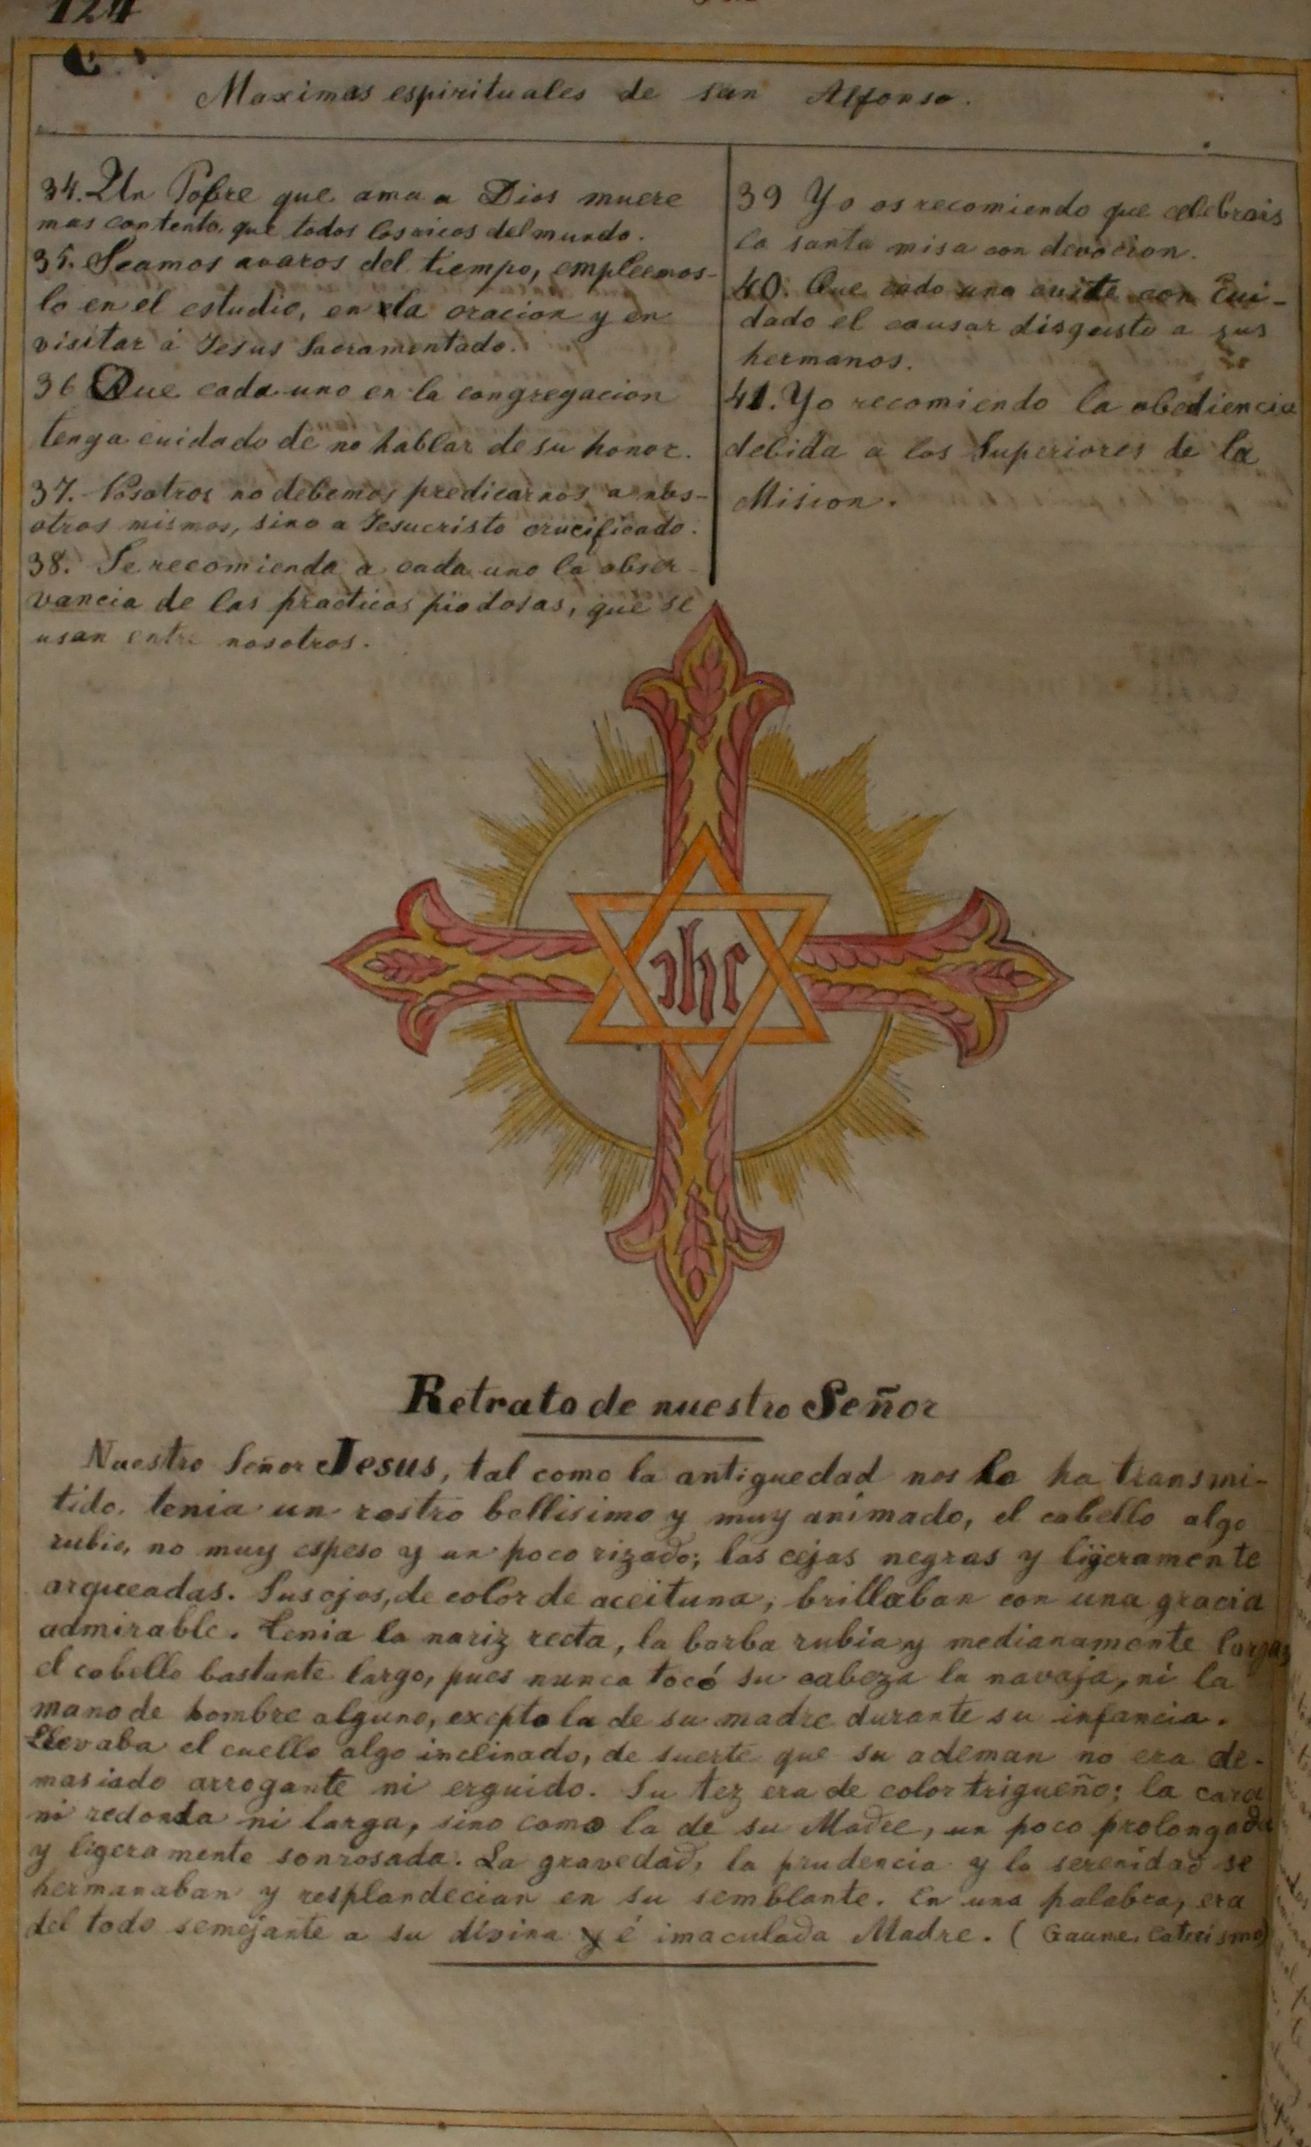 124
Maximas espirituales de san Alfonso.
34. Un Pobre que ama a Dios muere
mas contento, que todos los ricos del mundo.
35. Seamos avaros del tiempo, empleemos-
lo en el estudio, en la oracion y en
visitar á Jesus Sacramentado.
36 Que cada uno en la congregacion
tenga cuidado de no hablar de su honor.
37. Nosotros no debemos predicarnos a nos-
otros mismos, sino a Jesucristo crucificado.
38. Se recomienda a cada uno la obser-
vancia de las practicas piadosas, que se
usan entre nosotros.
39 Yo os recomiendo que celebrais
la santa misa con devocion.
40. Que cada uno evite con Cui-
dado el causar disgusto a sus
hermanos.
41. Yo recomiendo la obediencia
debida a los Superiores de la
Mision.
jhc
Retrato de nuestro Señor
Nuestro Señor Jesus, tal como la antiguedad nos lo ha transmi-
tido, tenia un rostro bellisimo y muy animado, el cabello algo
rubio, no muy espeso y un poco rizado; las cejas negras y ligeramente
arqueadas. Sus ojos, de color de aceituna, brillaban con una gracia
admirable. Tenia la nariz recta, la barba rubia y medianamente larga,
el cabello bastante largo, pues nunca tocó su cabeza la navaja, ni la
mano de hombre alguno, exepto la de su madre durante su infancia.
Llevaba el cuello algo inclinado, de suerte que su ademan no era de-
masiado arrogante ni erguido. Su tez era de color trigueño; la cara
ni redonda ni larga, sino como la de su Madre, un poco prolongada
y ligeramente sonrosada. La gravedad, la prudencia y la serenidad se
hermanaban y resplandecian en su semblante. En una palabra, era
del todo semejante a su divina y é imaculada Madre. (Gaume. Catecismo)